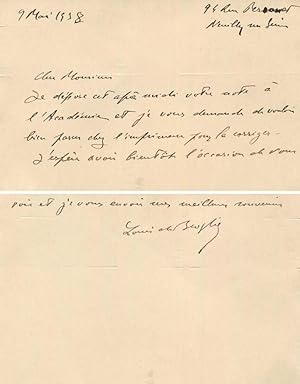 9 Mai 1938
94 Rue Perronet
Neuilly sur Seine
Cher Monsieur
Je dépose cet après midi votre note à
l'Académie et je vous demande de vouloir
bien passer chez l'imprimeur pour la corriger.
J'espère avoir bientôt l'occasion de vous
voir et je vous envoie mes meilleurs souvenirs
Louis de Broglie